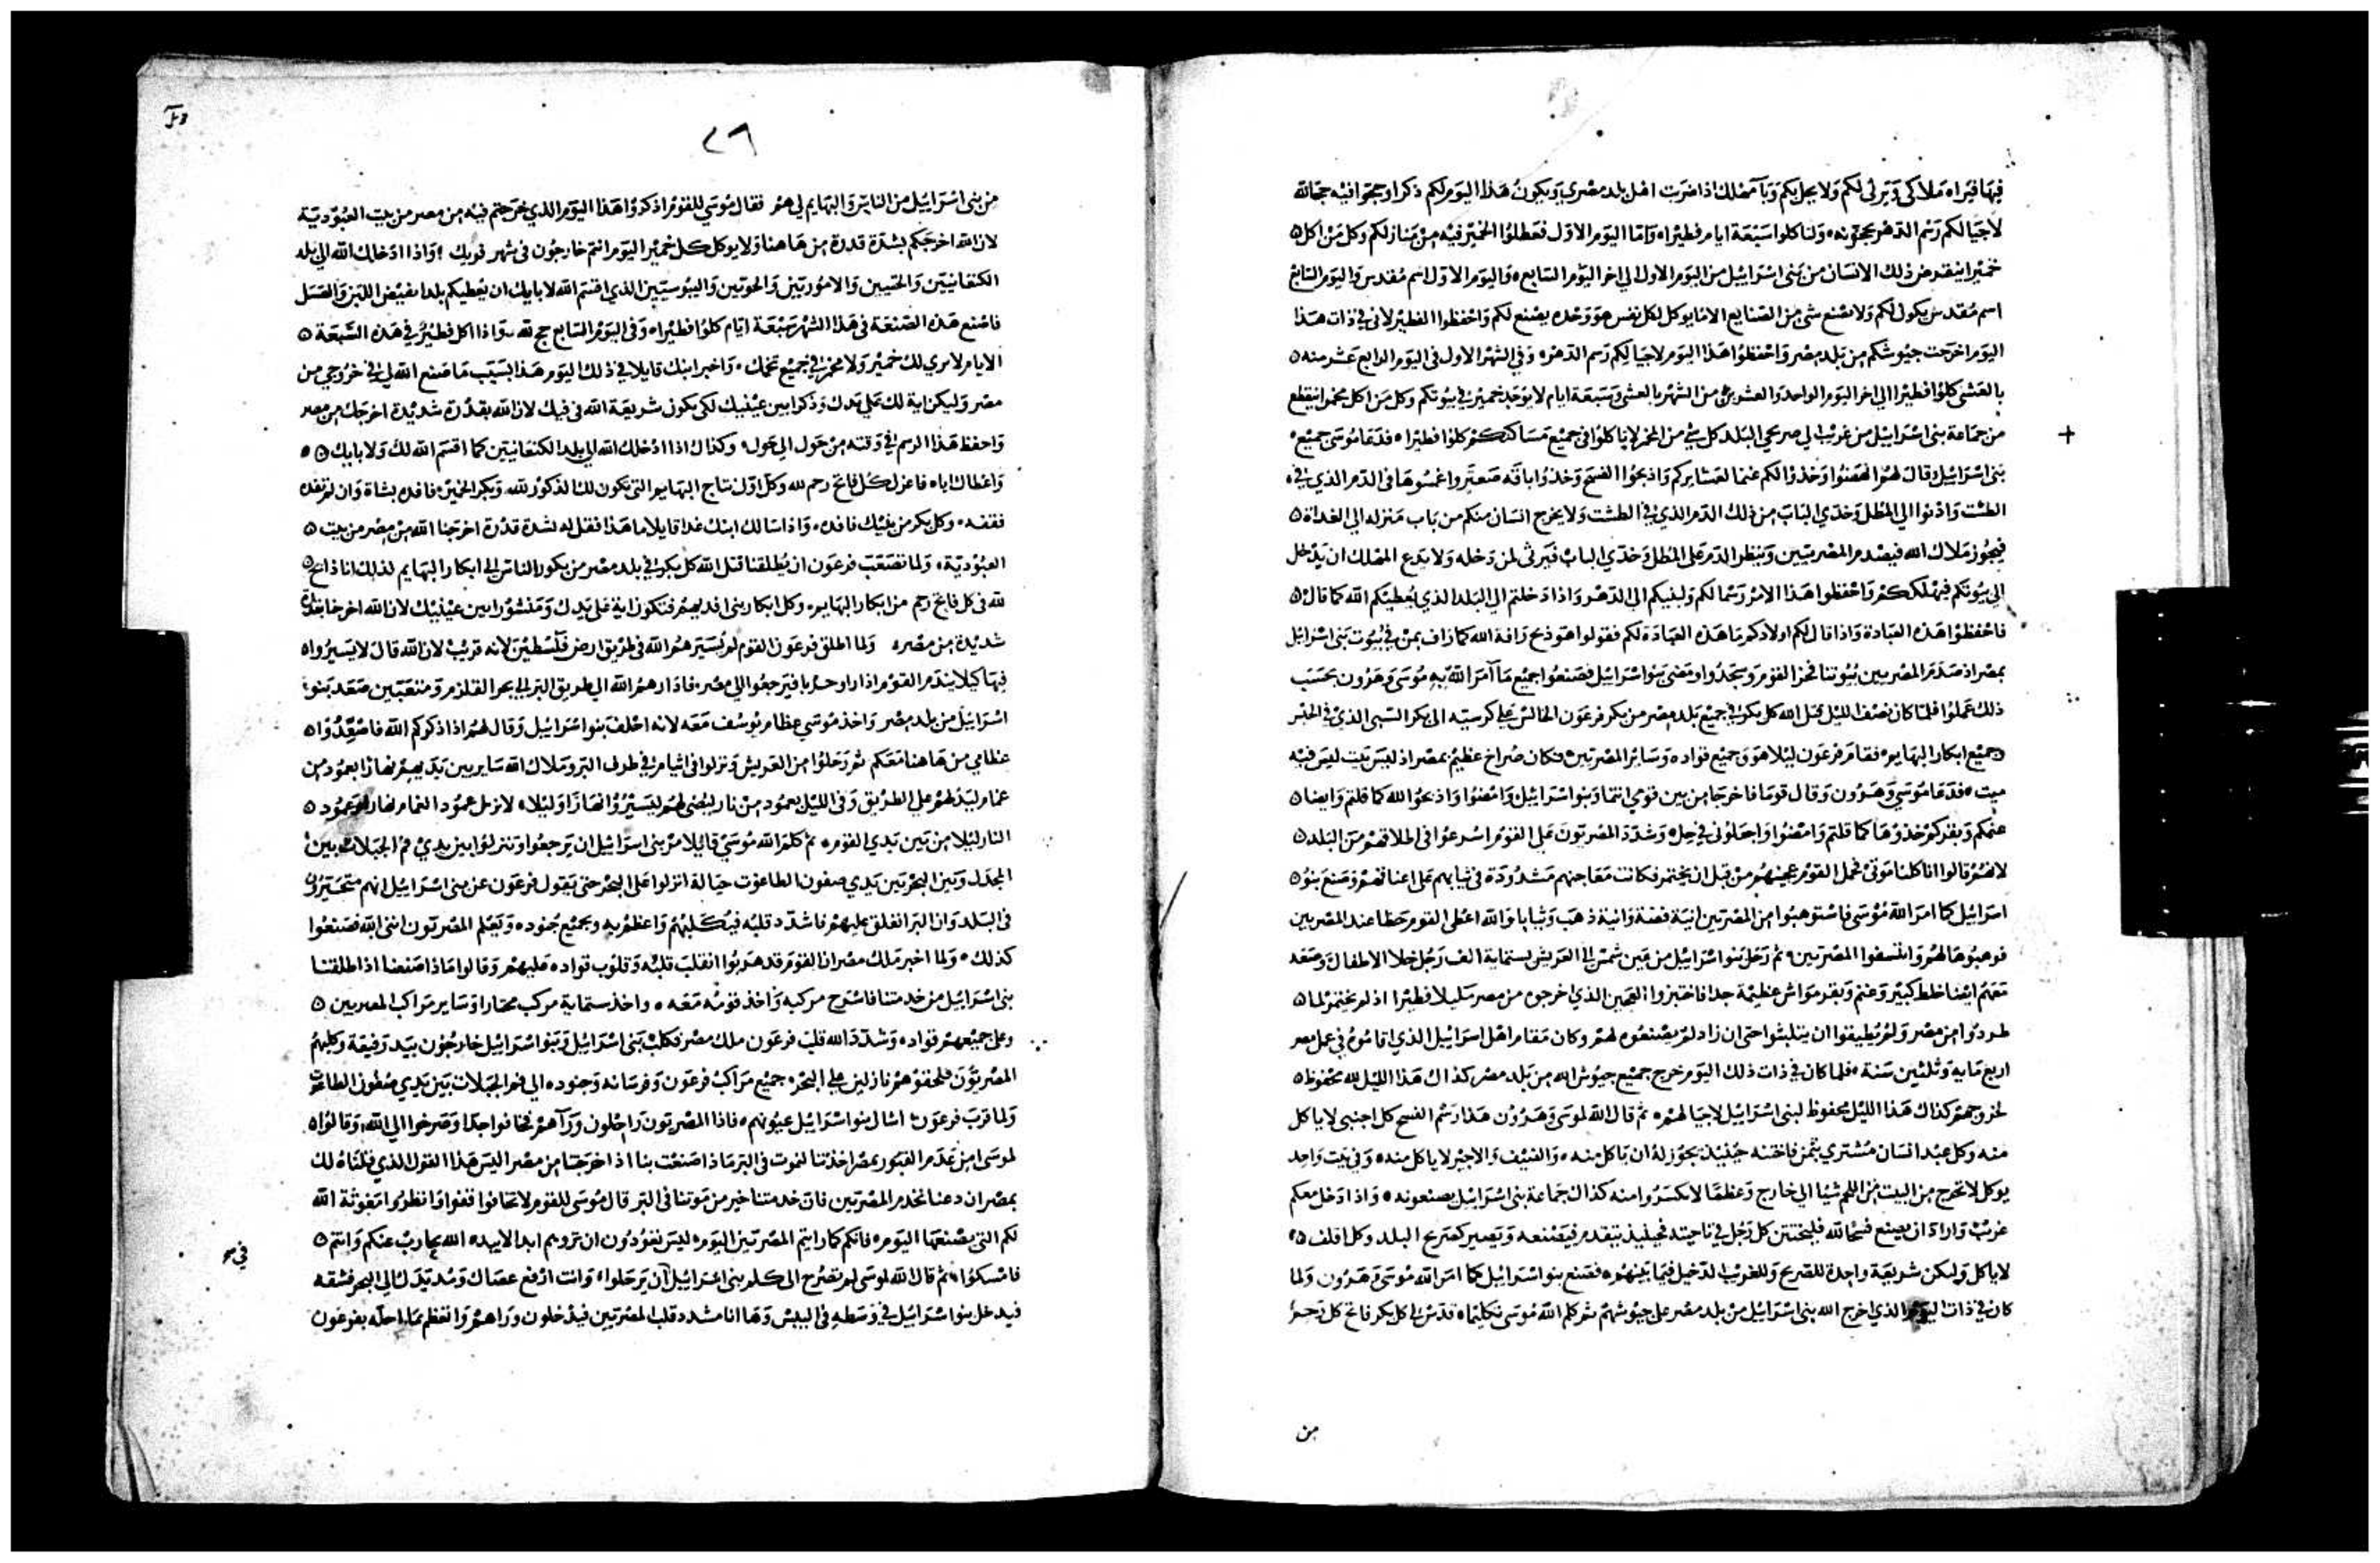 فيها فيراه ملاكى ويرثى لكم ولا يحل بكم وبآ مهلك اذا ضربت اهل بلد مصرى ويكون هذا اليوم لكم ذكرا وحجوا فيه حجا لله
لاجيالكم رسم الدهر تحجونه ولتاكلوا سبعة ايام فطيرا واما اليوم الاول فعطلوا الخمير فيه من منازلكم وكل من اكل
خميرا ينقرض ذلك الانسان من بنى اسراييل من اليوم الاول الى اخر اليوم السابع واليوم الاول اسم مقدس واليوم السابع
اسم مقدس يكون لكم ولا يصنع شى من الصنايع الا ما يوكل لكل نفس هو وحده يصنع لكم واحفظوا الفطير لانى في ذات هذا
اليوم اخرجت جيوشكم من بلد مصر واحفظوا هذا اليوم لاجيالكم رسم الدهر وفي الشهر الاول فى اليوم الرابع عشر منه
بالعشى كلوا فطيرا الى اخر اليوم الواحد والعشرين من الشهر بالعشى وسبعة ايام لا يوجد خمير في بيوتكم وكل من اكل مختمرا ينقطع
من جماعة بنى اسراييل من غريب الى صريحي البلد كل شي من الخمر لا ياكلوا فى جميع مساكنكم كلوا فطيرا فدعا موسى جميع
بنى اسراييل وقال لهم امضوا وخذوا لكم غنما لعشايركم واذبحوا الفسح وخذوا باقه صعتر واغمسوها فى الدم الذي في
الطشت واذنوا الى المطل وخدي الباب من ذلك الدم الذي في الطشت ولا يخرج انسان منكم من باب منزله الى الغداة
فيجوز ملاك الله فيصدم المصريين وينظر الدم على المطل وخدي الباب فيرثى لمن دخله ولا يدع المهلك ان يدخل
الى بيوتكم فيهلككم واحفظوا هذا الامر رسما لكم ولبنيكم الى الدهر واذا دخلتم الى البلد الذي يعطيكم الله كما قال
فاحفظوا هذه العبادة واذا قال لكم اولادكم ما هذه العبادة لكم فقولوا هو ذبح رافة الله كما راف بمن في بيوت بنى اسراييل
بمصر اذ صدم المصريين بيوتنا فخر القوم وسجدوا ومضى بنو اسراييل فصنعوا جميع ما امر الله به موسى وهرون بحسب
ذلك عملوا فلما كان نصف الليل قتل الله كل بكر في جميع بلد مصر من بكر فرعون الجالس على كرسيه الى بكر السبى الذي في الحبس
وجميع ابكار البهايم فقام فرعون ليلا هو وجميع قواده وسائر المصريين وكان صراخ عظيم بمصر اذ ليس بيت ليس فيه
ميت فدعا موسى وهرون وقال قوما فاخرجا من بين قومي انتما وبنو اسراييل وامضوا واذبحوا الله كما قلتم وايضا
غنمكم وبقركم خذوها كما قلتم وامضوا واجعلونى في حل وشدد المصريون على القوم اسرعوا فى اطلاقهم من البلد
لانهم قالوا انا كلنا موتى فحمل القوم عجينهم من قبل ان يختمر فكانت معاجنهم مشدودة فى ثيابهم على اعناقهم وصنع بنو
اسراييل كما امر الله موسى فاستوهبوا من المصريين انية فضة وانية ذهب وثيابا والله اعطى القوم حظا عند المصريين
فوهبوها لهم وانتسفوا المصريين ثم رحل بنو اسراييل من عين شمس الى العريش بستماية الف رجل خلا الاطفال وصعد
معهم ايضا خلط كبير وغنم وبقر مواش عظيمة جدا فاختبزوا العجين الذي اخرجوه من مصر مليلا فطيرا اذ لم يختمر لما
طردوا من مصر ولم يطيقوا ان يتلبثوا حتى ان زاد لم يصنعوه لهم وكان مقام اهل اسراييل الذي اقاموه في عمل مصر
اربع مايه وثلثين سنة فلما كان في ذات ذلك اليوم خرج جميع جيوش الله من بلد مصر كذاك هذا الليل لله محفوظ
لخروجهم كذاك هذا الليل محفوظ لبنى اسراييل لاجيالهم ثم قال الله لموسى وهرون هذا رسم الفسح كل اجنبى لا ياكل
منه وكل عبد انسان مشترى بثمن فاختنه حينيذ يجوز له ان ياكل منه والضيف والاجير لا ياكل منه وفى بيت واحد
يوكل لا تخرج من البيت من اللحم شيا الى خارج وعظما لا تكسروا منه كذاك جماعة بنى اسراييل يصنعونه واذا دخل معكم
غريب واراد ان يصنع فسحا لله فليختتن كل رجل في ناحيته فحينيذ يتقدم فيصنعه ويصير كصريح البلد وكل اقلف
لا ياكل ولتكن شريعة واحدة للصريح وللغريب الدخيل فيما بينهم فصنع بنو اسراييل كما امر الله موسى وهرون ولما
كان في ذات اليوم الذي اخرج الله بنى اسراييل من بلد مصر على جيوشهم ثم كلم الله موسى تكليما قدس لى كل بكر فاتح كل رحم
من
٢٦
من بنى اسراييل من الناس والبهايم لى هم فقال موسى للقوم اذكروا هذا اليوم الذي خرجتم فيه من مصر من بيت العبودية
لان الله اخرجكم بشدة قدرة من هاهنا ولا يوكل كل خمير اليوم انتم خارجون فى شهر فريك واذا ادخلك الله الى بلد
الكنعانيين والحثيين والاموريين والحويين واليبوسيين الذي اقسم الله لابايك ان يعطيكم بلدا يفيض اللبن والعسل
فاصنع هذه الصنعة فى هذا الشهر سبعة ايام كلوا فطيرا وفى اليوم السابع حج لله واذا اكل فطير في هذه السبعة
الايام لا يرى لك خمير ولا مختمر في جميع تخمك واخبر ابنك قايلا في ذلك اليوم هذا بسبب ما صنع الله لى في خروجي من
مصر وليكن اية لك على يدك وذكرا بين عينيك لكى يكون شريعة الله فى فيك لان الله بقدرة شديدة اخرجك من مصر
واحفظ هذا الرسم في وقته من حول الى حول وكذاك اذا ادخلك الله الى بلد الكنعانيين كما اقسم الله لك ولابايك
واعطاك اياه فاعزل كل فاتح رحم لله وكل اول نتاج البهايم التى تكون لك الذكور لله وبكر الحمير فافده بشاة وان لم تفده
فقفه وكل بكر من بنيك فافده واذا سالك ابنك غدا قايلا ما هذا فقل له لشدة قدرة اخرجنا الله من مصر من بيت
العبودية ولما تصعب فرعون ان يطلقنا قتل الله كل بكر في بلد مصر من بكور الناس الى ابكار البهايم لذلك انا ذابح
لله فى كل فاتح رحم من ابكار البهايم وكل ابكار بنى افديهم فتكون اية على يدك ومنشورا بين عينيك لان الله اخرجنا بقدرة
شديدة من مصر ولما اطلق فرعون القوم لم يسيرهم الله فى طريق ارض فلسطين لانه قريب لان الله قال لا يسيروا
فيها كيلا يندم القوم اذا راوا حربا فيرجعوا الى مصر فادارهم الله الى طريق البر الى بحر القلزم ومتعبين صعد بنو
اسراييل من بلد مصر واخذ موسى عظام يوسف معه لانه احلف بنو اسراييل وقال لهم اذا ذكركم الله فاصعدوا
عظامى من هاهنا معكم ثم رحلوا من العريش ونزلوا فى اثيام في طرف البر وملاك الله ساير بين يديهم نهارا بعمود من
غمام ليدلهم على الطريق وفى الليل بعمود من نار ليضى لهم ليسيروا نهارا وليلا لا يزل عمود الغمام نهارا وعمود
النار ليلا من بين يدي القوم ثم كلم الله موسى قايلا مر بنى اسراييل ان يرجعوا وينزلوا بين يدي فم الجبلات بين
المجدل وبين البحر بين يدي صفون الطاغوت حياله انزلوا على البحر حتى يقول فرعون عن بنى اسراييل انهم متحيرون
فى البلد وان البر انغلق عليهم فاشدد قلبه فيكلبهم واعظم به وبجميع جنوده ويعلم المصريون اننى الله فصنعوا
كذلك ولما اخبر ملك مصر ان القوم قد هربوا انقلب قلبه وقلوب قواده عليهم وقالوا ماذا صنعنا اذ اطلقنا
بنى اسراييل من خدمتنا فاسرج مركبه واخذ قومه معه واخذ ستماية مركب مختارا وساير مراكب المصريين
وعلى جميعهم قواده وشدد الله قلب فرعون ملك مصر فكلب بنى اسراييل وبنو اسراييل خارجون بيد رفيعة وكلبهم
المصريون فلحقوهم نازلين على البحر جميع مراكب فرعون وفرسانه وجنوده الى فم الجبلات بين يدي صفون الطاغوت
ولما قرب فرعون اشال بنو اسراييل عيونهم فاذا المصريون راحلون وراهم فخافوا جدا وصرخوا الى الله وقالوا
لموسى امن عدم القبور بمصر اخذتنا لنموت فى البر ماذا صنعت بنا اذ اخرجتنا من مصر اليس هذا القول الذي قلناه لك
بمصر ان دعنا نخدم المصريين فان خدمتنا خير من موتنا فى البر قال موسى للقوم لا تخافوا قفوا وانظروا مغوثة الله
لكم التى يصنعها اليوم فانكم كما رايتم المصريين اليوم ليس تعودون ان تروهم ابد الابد الله يحارب عنكم وانتم
فامسكوا ثم قال الله لموسى لم تصرخ الى كلم بنى اسراييل ان يرحلوا وانت ارفع عصاك ومد يدك الى البحر فشقه
فيدخل بنو اسراييل في وسطه فى اليبس وها انا مشدد قلب المصريين فيدخلون وراهم واتعظم بما احله بفرعون